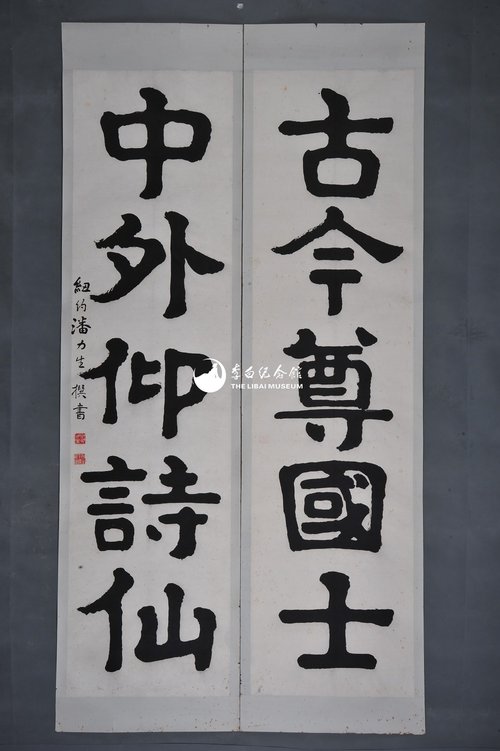 古今尊國士
中外仰詩仙
紐約潘力生撰書
李白纪念馆
THE LIBAI MUSEUM